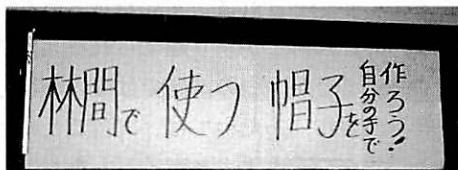 林間で使う帽子を
自分の手で
作ろう!